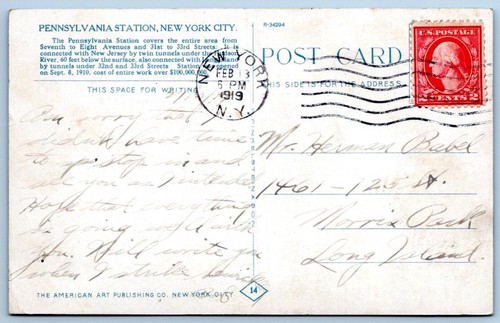 PENNSYLVANIA STATION, NEW YORK CITY.
The Pennsylvania Station covers the entire area from
Seventh to Eight Avenues and 31st to 33rd Streets. It is
connected with New Jersey by twin tunnels under the Hudson
River, 60 feet below the surface, also connected with Long Island
by tunnels under 32nd and 33rd Streets. Station was opened
on Sept. 8, 1910, cost of entire work over $100,000,000.
THIS SPACE FOR WRITING
Am sorry that I
didn't have time
to go stop in and
see you as I intended
Hope that everything
is going well with
you. Will write you
when I strike
THE AMERICAN ART PUBLISHING CO. NEW YORK CITY
R-34294
POST CARD
THIS SIDE IS FOR THE ADDRESS
NEW YORK
FEB 13
6 PM
1919
N.Y.
U.S. POSTAGE
2 CENTS 2
Mr. Herman Babel
1461-125 St.
Morris Park
Long Island.
14